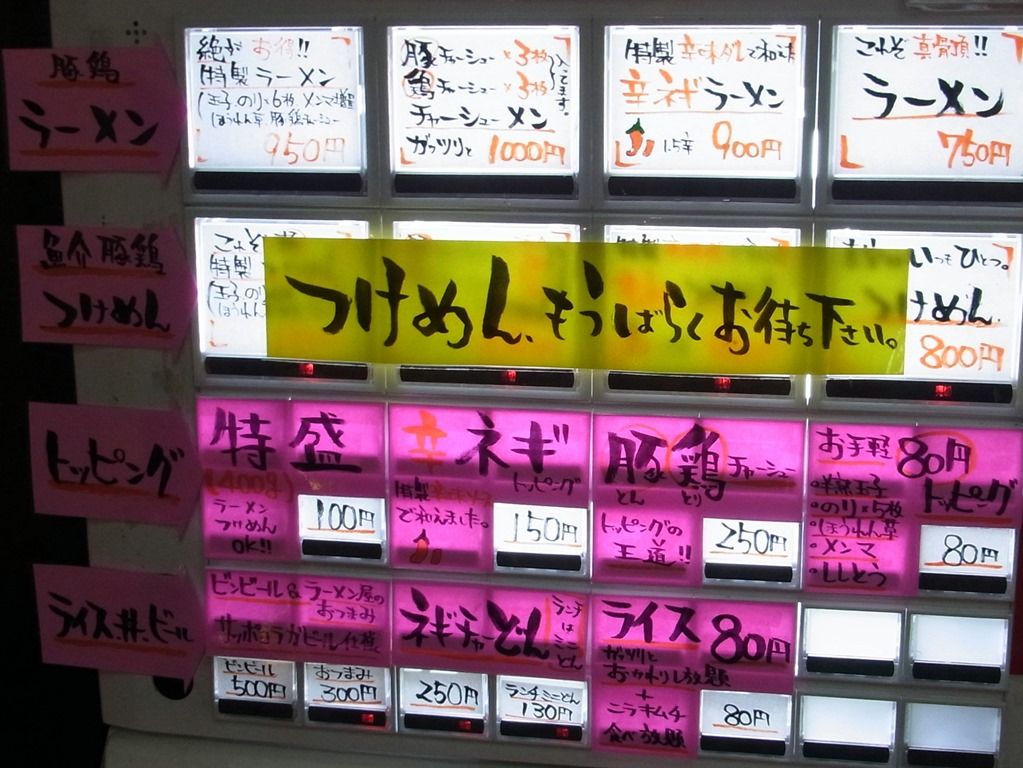 豚鶏
ラーメン
絶対お得!!
特製ラーメン
950円
豚チャーシュー×3枚
鶏チャーシュー×3枚
入ってます。
チャーシューメン
ガッツリと 1000円
特製辛味ダレで和えた
辛ネギラーメン
1.5辛 900円
これぞ真骨頂!!
ラーメン
750円
魚介豚鶏
つけめん
これぞ
特製
いつもひとつ。
けめん.
800円
つけめん、もうしばらくお待ち下さい。
トッピング
特盛
(400g)
ラーメン
つけめん
OK!!
100円
辛ネギ
トッピング
で和えました。
150円
豚鶏チャーシュー
とん とり
トッピングの
王道!!
250円
お手軽80円
トッピング
・半熟玉子
・のり×5枚
・ほうれん草
・メンマ
・ししとう
80円
ライス・丼・ビール
ビンビール&ラーメン屋の
おつまみ
ビンビール
500円
おつまみ
300円
ネギチャーどん
ランチは
ミニ
どん
250円
ランチミニどん
130円
ライス80円
ガッツリと
おかわりし放題
+
ニラキムチ
食べ放題
80円